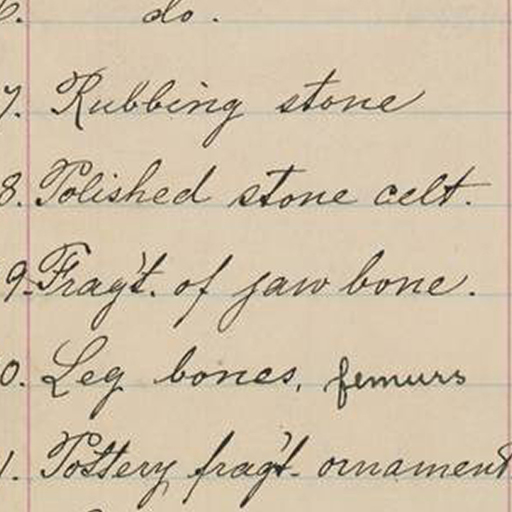 do.
7. Rubbing stone
8. Polished stone celt.
9. Frag't. of jaw bone.
0. Leg bones, femurs
1. Pottery frag't. ornament